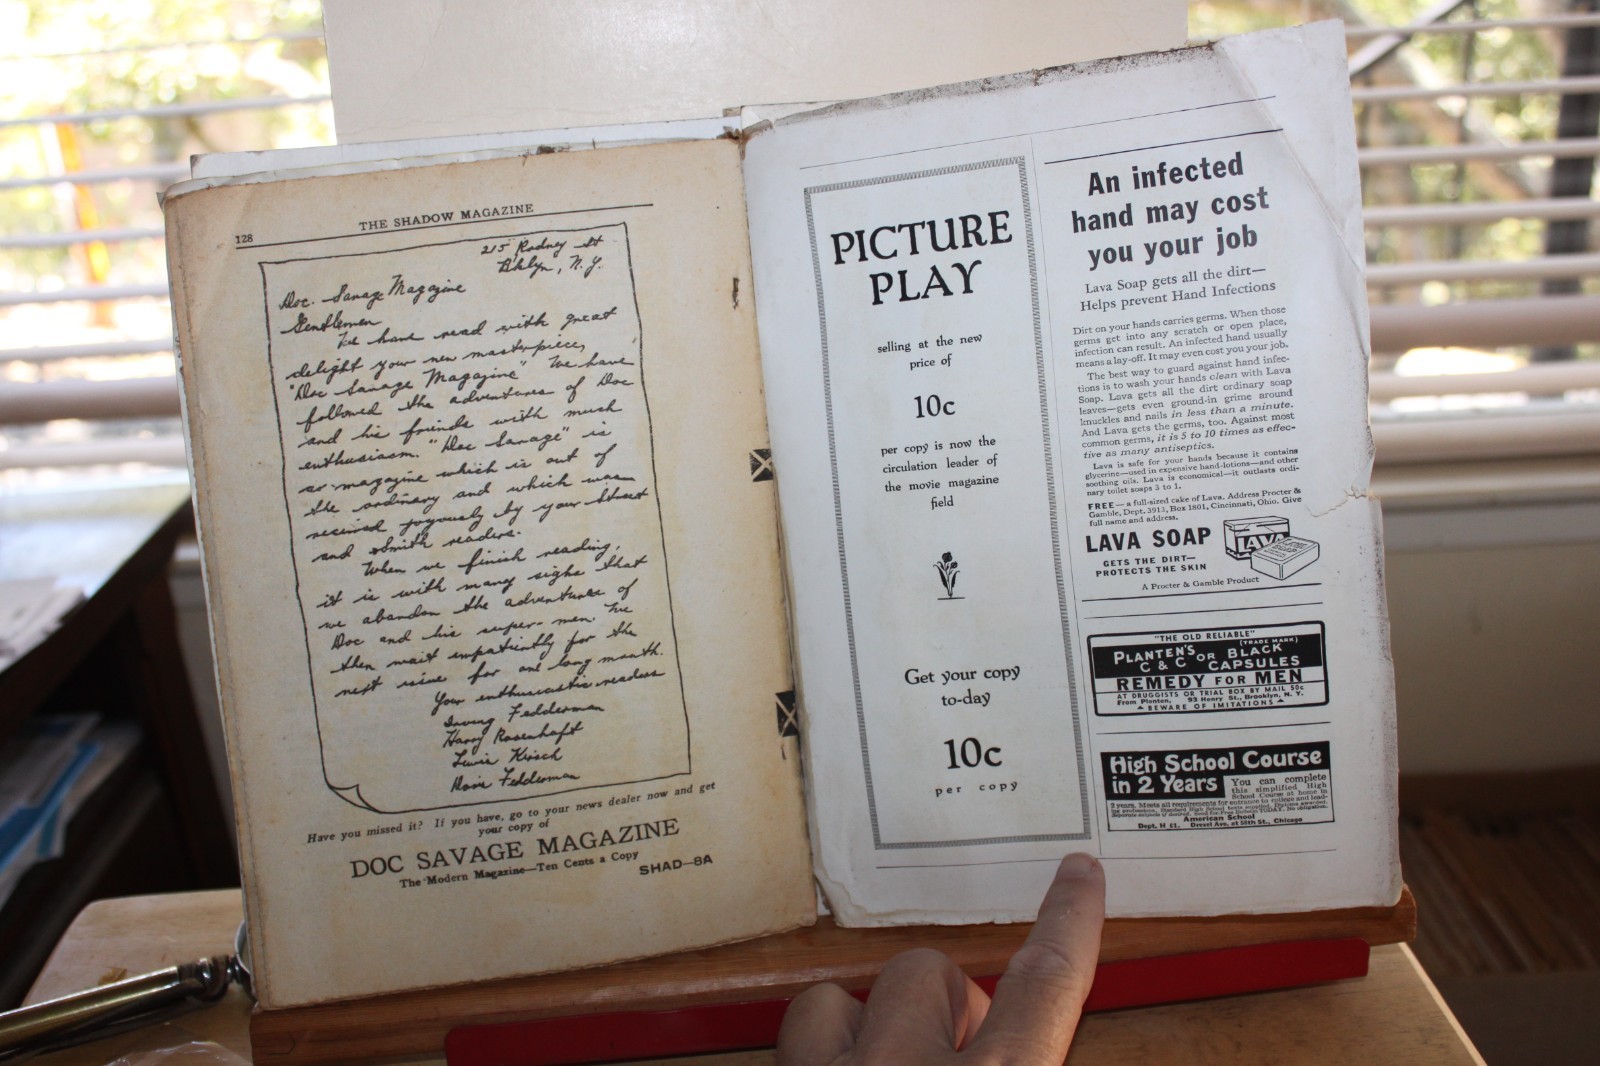 128
THE SHADOW MAGAZINE
215 Rodney St
Bklyn, N.Y.
Doc. Savage Magazine
Gentlemen
We have read with great
delight your new masterpiece,
"Doc Savage Magazine" We have
followed the adventures of Doc
and his friends with much
enthusiasm. "Doc Savage" is
a magazine which is out of
the ordinary and which was
received joyously by your Street
and Smith readers.
When we finish reading,
it is with many sighs that
we abandon the adventures of
Doc and his super-men. We
then wait impatiently for the
next issue for one long month.
Your enthusiastic readers
Irving Fedderman
Harry Rosenhaft
Louis Kirsch
Dave Fedderman
Have you missed it? If you have, go to your news dealer now and get
your copy of
DOC SAVAGE MAGAZINE
The Modern Magazine—Ten Cents a Copy
SHAD—8A
PICTURE
PLAY
selling at the new
price of
10c
per copy is now the
circulation leader of
the movie magazine
field
Get your copy
to-day
10c
per copy
An infected
hand may cost
you your job
Lava Soap gets all the dirt—
Helps prevent Hand Infections
Dirt on your hands carries germs. When those
germs get into any scratch or open place,
infection can result. An infected hand usually
means a lay-off. It may even cost you your job.
The best way to guard against hand infec-
tions is to wash your hands clean with Lava
Soap. Lava gets all the dirt ordinary soap
leaves—gets even ground-in grime around
knuckles and nails in less than a minute.
And Lava gets the germs, too. Against most
common germs, it is 5 to 10 times as effec-
tive as many antiseptics.
Lava is safe for your hands because it contains
glycerine—used in expensive hand-lotions—and other
soothing oils. Lava is economical—it outlasts ordi-
nary toilet soaps 3 to 1.
FREE—a full-sized cake of Lava. Address Procter &
Gamble, Dept. 3913, Box 1801, Cincinnati, Ohio. Give
full name and address.
LAVA SOAP
GETS THE DIRT—
PROTECTS THE SKIN
LAVA
A Procter & Gamble Product
"THE OLD RELIABLE"
(TRADE MARK)
PLANTEN'S
C & C OR BLACK
CAPSULES
REMEDY FOR MEN
AT DRUGGISTS OR TRIAL BOX BY MAIL 50c
From Planten, 93 Henry St., Brooklyn, N. Y.
BEWARE OF IMITATIONS
High School Course
in 2 Years
You can complete
this simplified High
School Course at home in
2 years. Meets all requirements for entrance to college and lead-
American School
Dept. H 61, Drexel Ave. at 58th St., Chicago